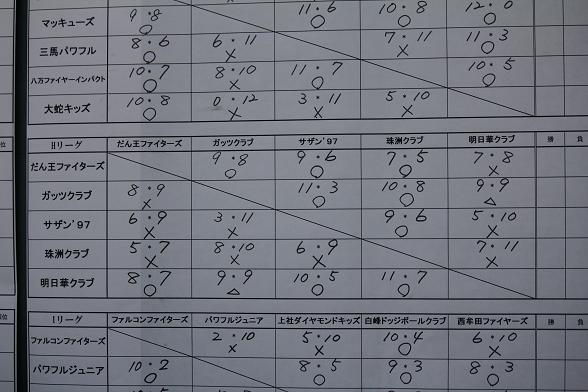 マッキューズ 9・8 ○ 11・6 ○ 10・8 ○ 12・0 ○
三馬パワフル 8・6 ○ 6・11 × 7・11 × 11・3 ○
八万ファイヤーインパクト 10・7 ○ 8・10 × 11・7 ○ 10・5 ○
大蛇キッズ 10・8 ○ 0・12 × 3・11 × 5・10 ×
Hリーグ だん王ファイターズ ガッツクラブ サザン'97 珠洲クラブ 明日華クラブ 勝 負
だん王ファイターズ 9・8 ○ 9・6 ○ 7・5 ○ 7・8 ×
ガッツクラブ 8・9 × 11・3 ○ 10・8 ○ 9・9 △
サザン'97 6・9 × 3・11 × 9・6 ○ 5・10 ×
珠洲クラブ 5・7 × 8・10 × 6・9 × 7・11 ×
明日華クラブ 8・7 ○ 9・9 △ 10・5 ○ 11・7 ○
Iリーグ ファルコンファイターズ パワフルジュニア 上社ダイヤモンドキッズ 白峰ドッジボールクラブ 西牟田ファイヤーズ 勝 負
ファルコンファイターズ 2・10 × 5・10 × 10・4 ○ 6・10 ×
パワフルジュニア 10・2 ○ 8・5 ○ 9・3 ○ 8・3 ○